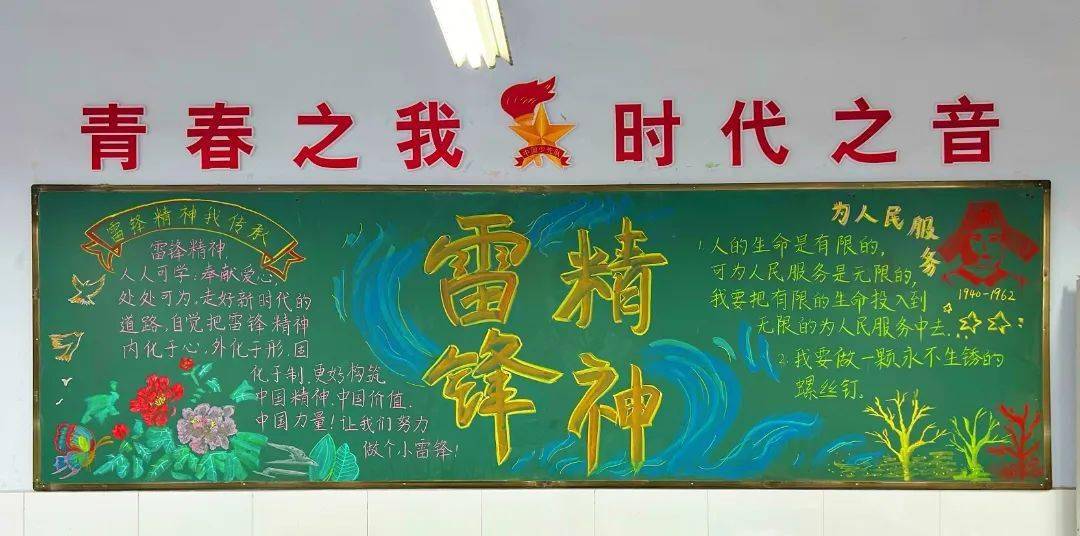 青春之我 时代之音
中国少先队
雷锋精神我传承
雷锋精神,
人人可学;奉献爱心,
处处可为,走好新时代的
道路,自觉把雷锋精神
内化于心,外化于形,固
化于制,更好构筑
中国精神,中国价值,
中国力量!让我们努力
做个小雷锋!
雷锋
精神
为人民服务
1.人的生命是有限的,
可为人民服务是无限的,
我要把有限的生命投入到
无限的为人民服务中去.
2.我要做一颗永不生锈的
螺丝钉.
1940-1962